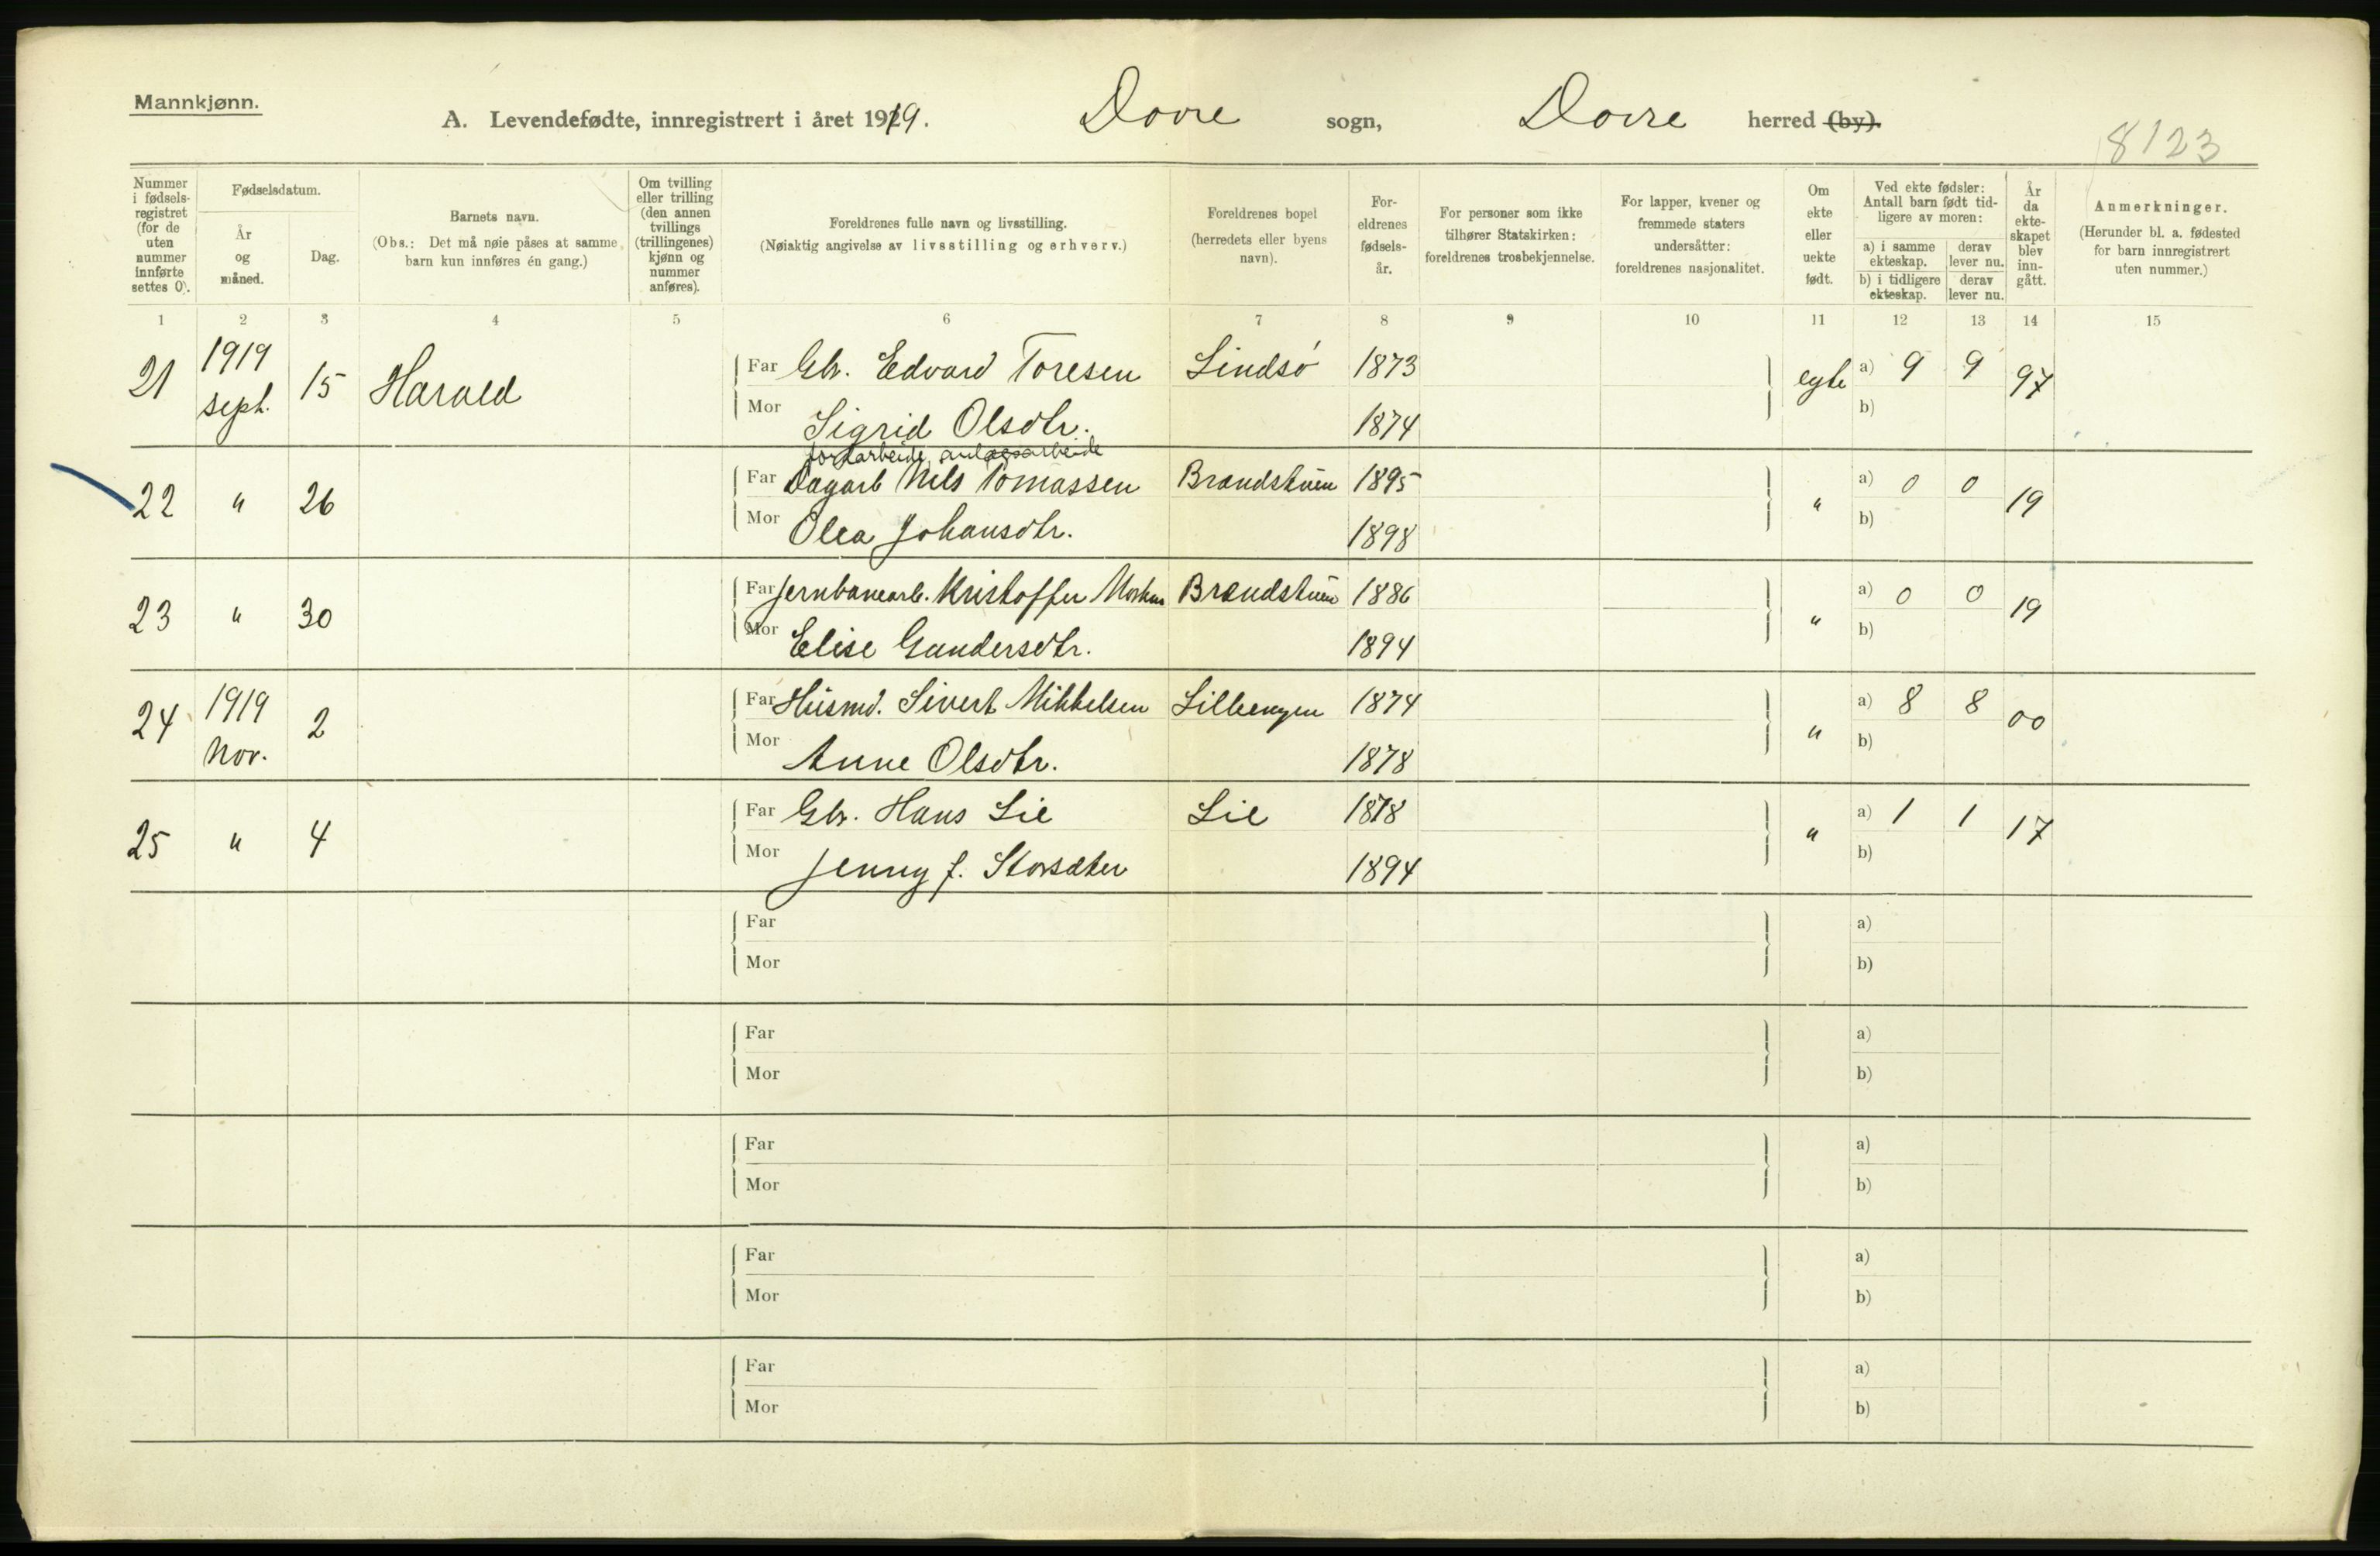 Mannkjønn.
A. Levendefødte, innregistrert i året 1919. Dovre sogn, Dovre herred (by).
8123
Nummer i fødselsregistret (for de uten nummer innførte settes 0).
Fødselsdatum.
År og måned.
Dag.
Barnets navn.
(Obs.: Det må nøie påses at samme barn kun innføres én gang.)
Om tvilling eller trilling (den annen tvillings (trillingenes) kjønn og nummer anføres).
Foreldrenes fulle navn og livsstilling.
(Nøiaktig angivelse av livsstilling og erhverv.)
Foreldrenes bopel (herredets eller byens navn).
Foreldrenes fødselsår.
For personer som ikke tilhører Statskirken: foreldrenes trosbekjennelse.
For lapper, kvener og fremmede staters undersåtter: foreldrenes nasjonalitet.
Om ekte eller uekte født.
Ved ekte fødsler: Antall barn født tidligere av moren:
a) i samme ekteskap. derav lever nu.
b) i tidligere ekteskap. derav lever nu.
År da ekteskapet blev inngått.
Anmerkninger.
(Herunder bl. a. fødested for barn innregistrert uten nummer.)
1 2 3 4 5 6 7 8 9 10 11 12 13 14 15
21 1919 sept. 15 Harald Far Gbr. Edvard Toresen Lindsø 1873 egte a) 9 9 97
Mor Sigrid Olsdtr. 1874 b)
jordarbeide, anlægsarbeide
22 " 26 Far Dagarb Nils Tomassen Brandstuen 1895 " a) 0 0 19
Mor Olea Johansdtr. 1898 b)
23 " 30 Far Jernbanearb. Kristoffer Brendstuen 1886 " a) 0 0 19
Mor Elise Gundersdtr. 1894 b)
24 1919 Nov. 2 Far Husmd. Sivert Mikkelsen Lilleengen 1874 " a) 8 8 00
Mor Anne Olsdtr. 1878 b)
25 " 4 Far Gbr. Hans Lie Lie 1878 " a) 1 1 17
Mor Jenny f. Storsæter 1894 b)
Far a)
Mor b)
Far a)
Mor b)
Far a)
Mor b)
Far a)
Mor b)
Far a)
Mor b)